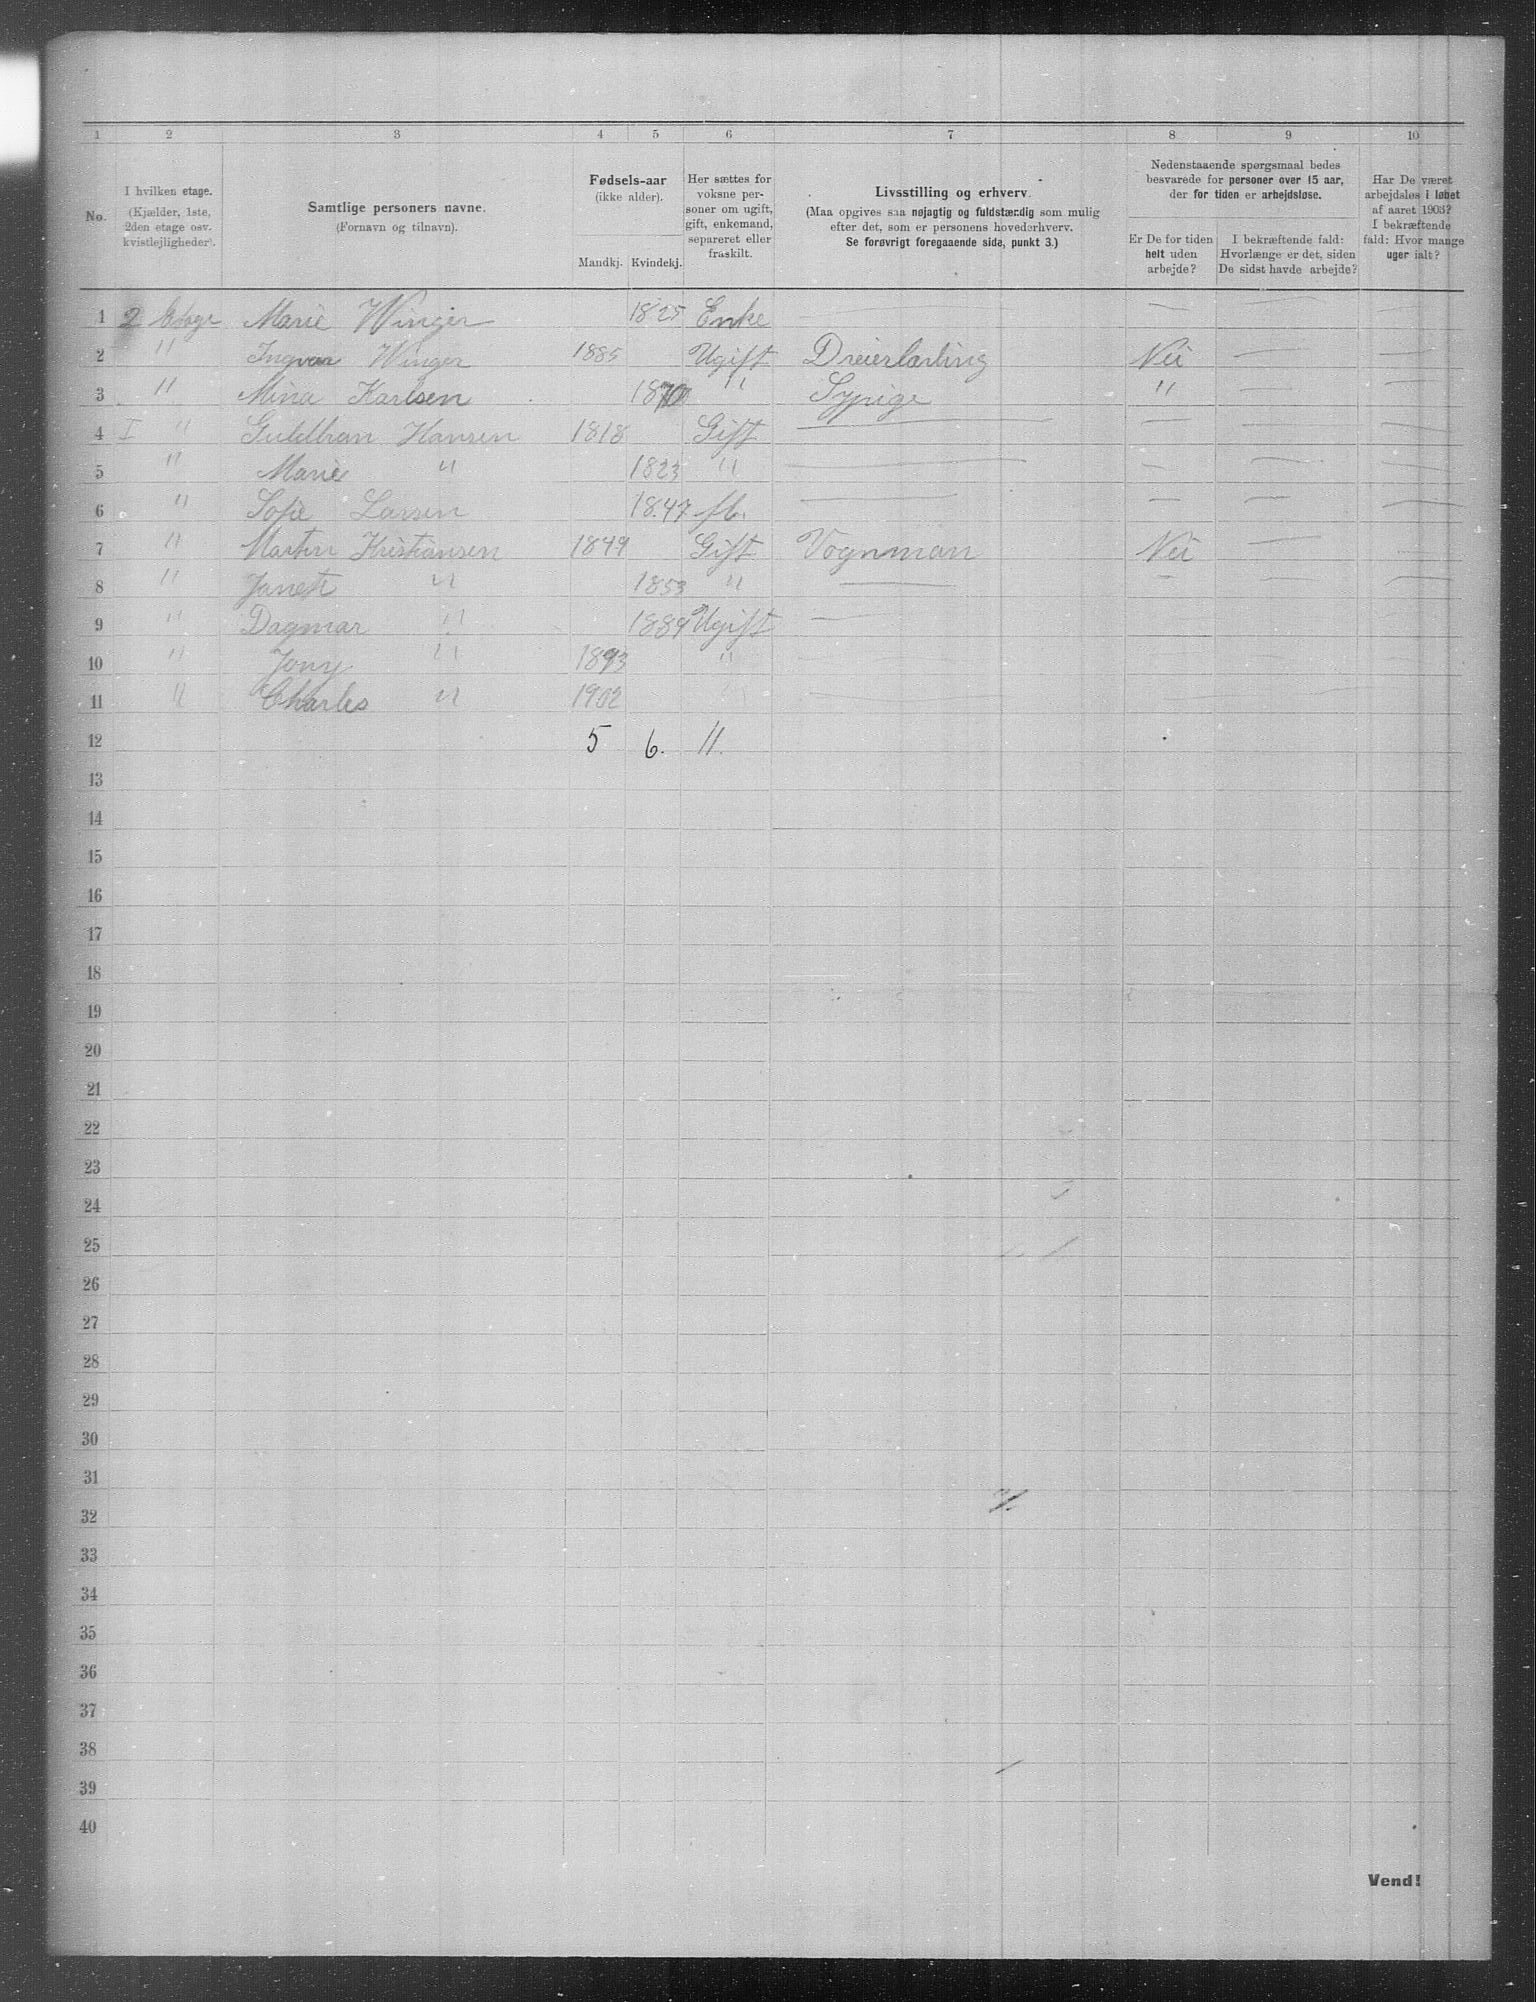 1 2 3 4 5 6 7 8 9 10
No.
I hvilken etage.
(Kjælder, 1ste,
2den etage osv.
kvistlejligheder).
Samtlige personers navne.
(Fornavn og tilnavn).
Fødsels-aar
(ikke alder).
Mandkj. Kvindekj.
Her sættes for
voksne per-
soner om ugift,
gift, enkemand,
separeret eller
fraskilt.
Livsstilling og erhverv.
(Maa opgives saa nøjagtig og fuldstændig som mulig
efter det, som er personens hovederhverv.
Se forøvrigt foregaaende side, punkt 3.)
Nedenstaaende spørgsmaal bedes
besvarede for personer over 15 aar,
der for tiden er arbejdsløse.
Er De for tiden
helt uden
arbejde?
I bekræftende fald:
Hvorlænge er det, siden
De sidst havde arbejde?
Har De været
arbejdsløs i løbet
af aaret 1903?
I bekræftende
fald: Hvor mange
uger ialt?
1 2 Etage Marie Winger 1825 Enke
2 " Ingvar Winger 1885 Ugift Dreierlærling Nei
3 " Mina Karlsen 1870 " Sypige "
4 I " Guldbran Hansen 1818 Gift
5 " Marie " 1823 "
6 " Sofie Larsen 1847 fb.
7 " Martin Kristiansen 1849 Gift Vognman Nei
8 " Janett " 1853 "
9 " Dagmar " 1889 Ugift
10 " Jony " 1893 "
11 " Charles " 1902 "
12 5 6. 11.
13
14
15
16
17
18
19
20
21
22
23
24
25
26
27
28
29
30
31
32
33
34
35
36
37
38
39
40
Vend!